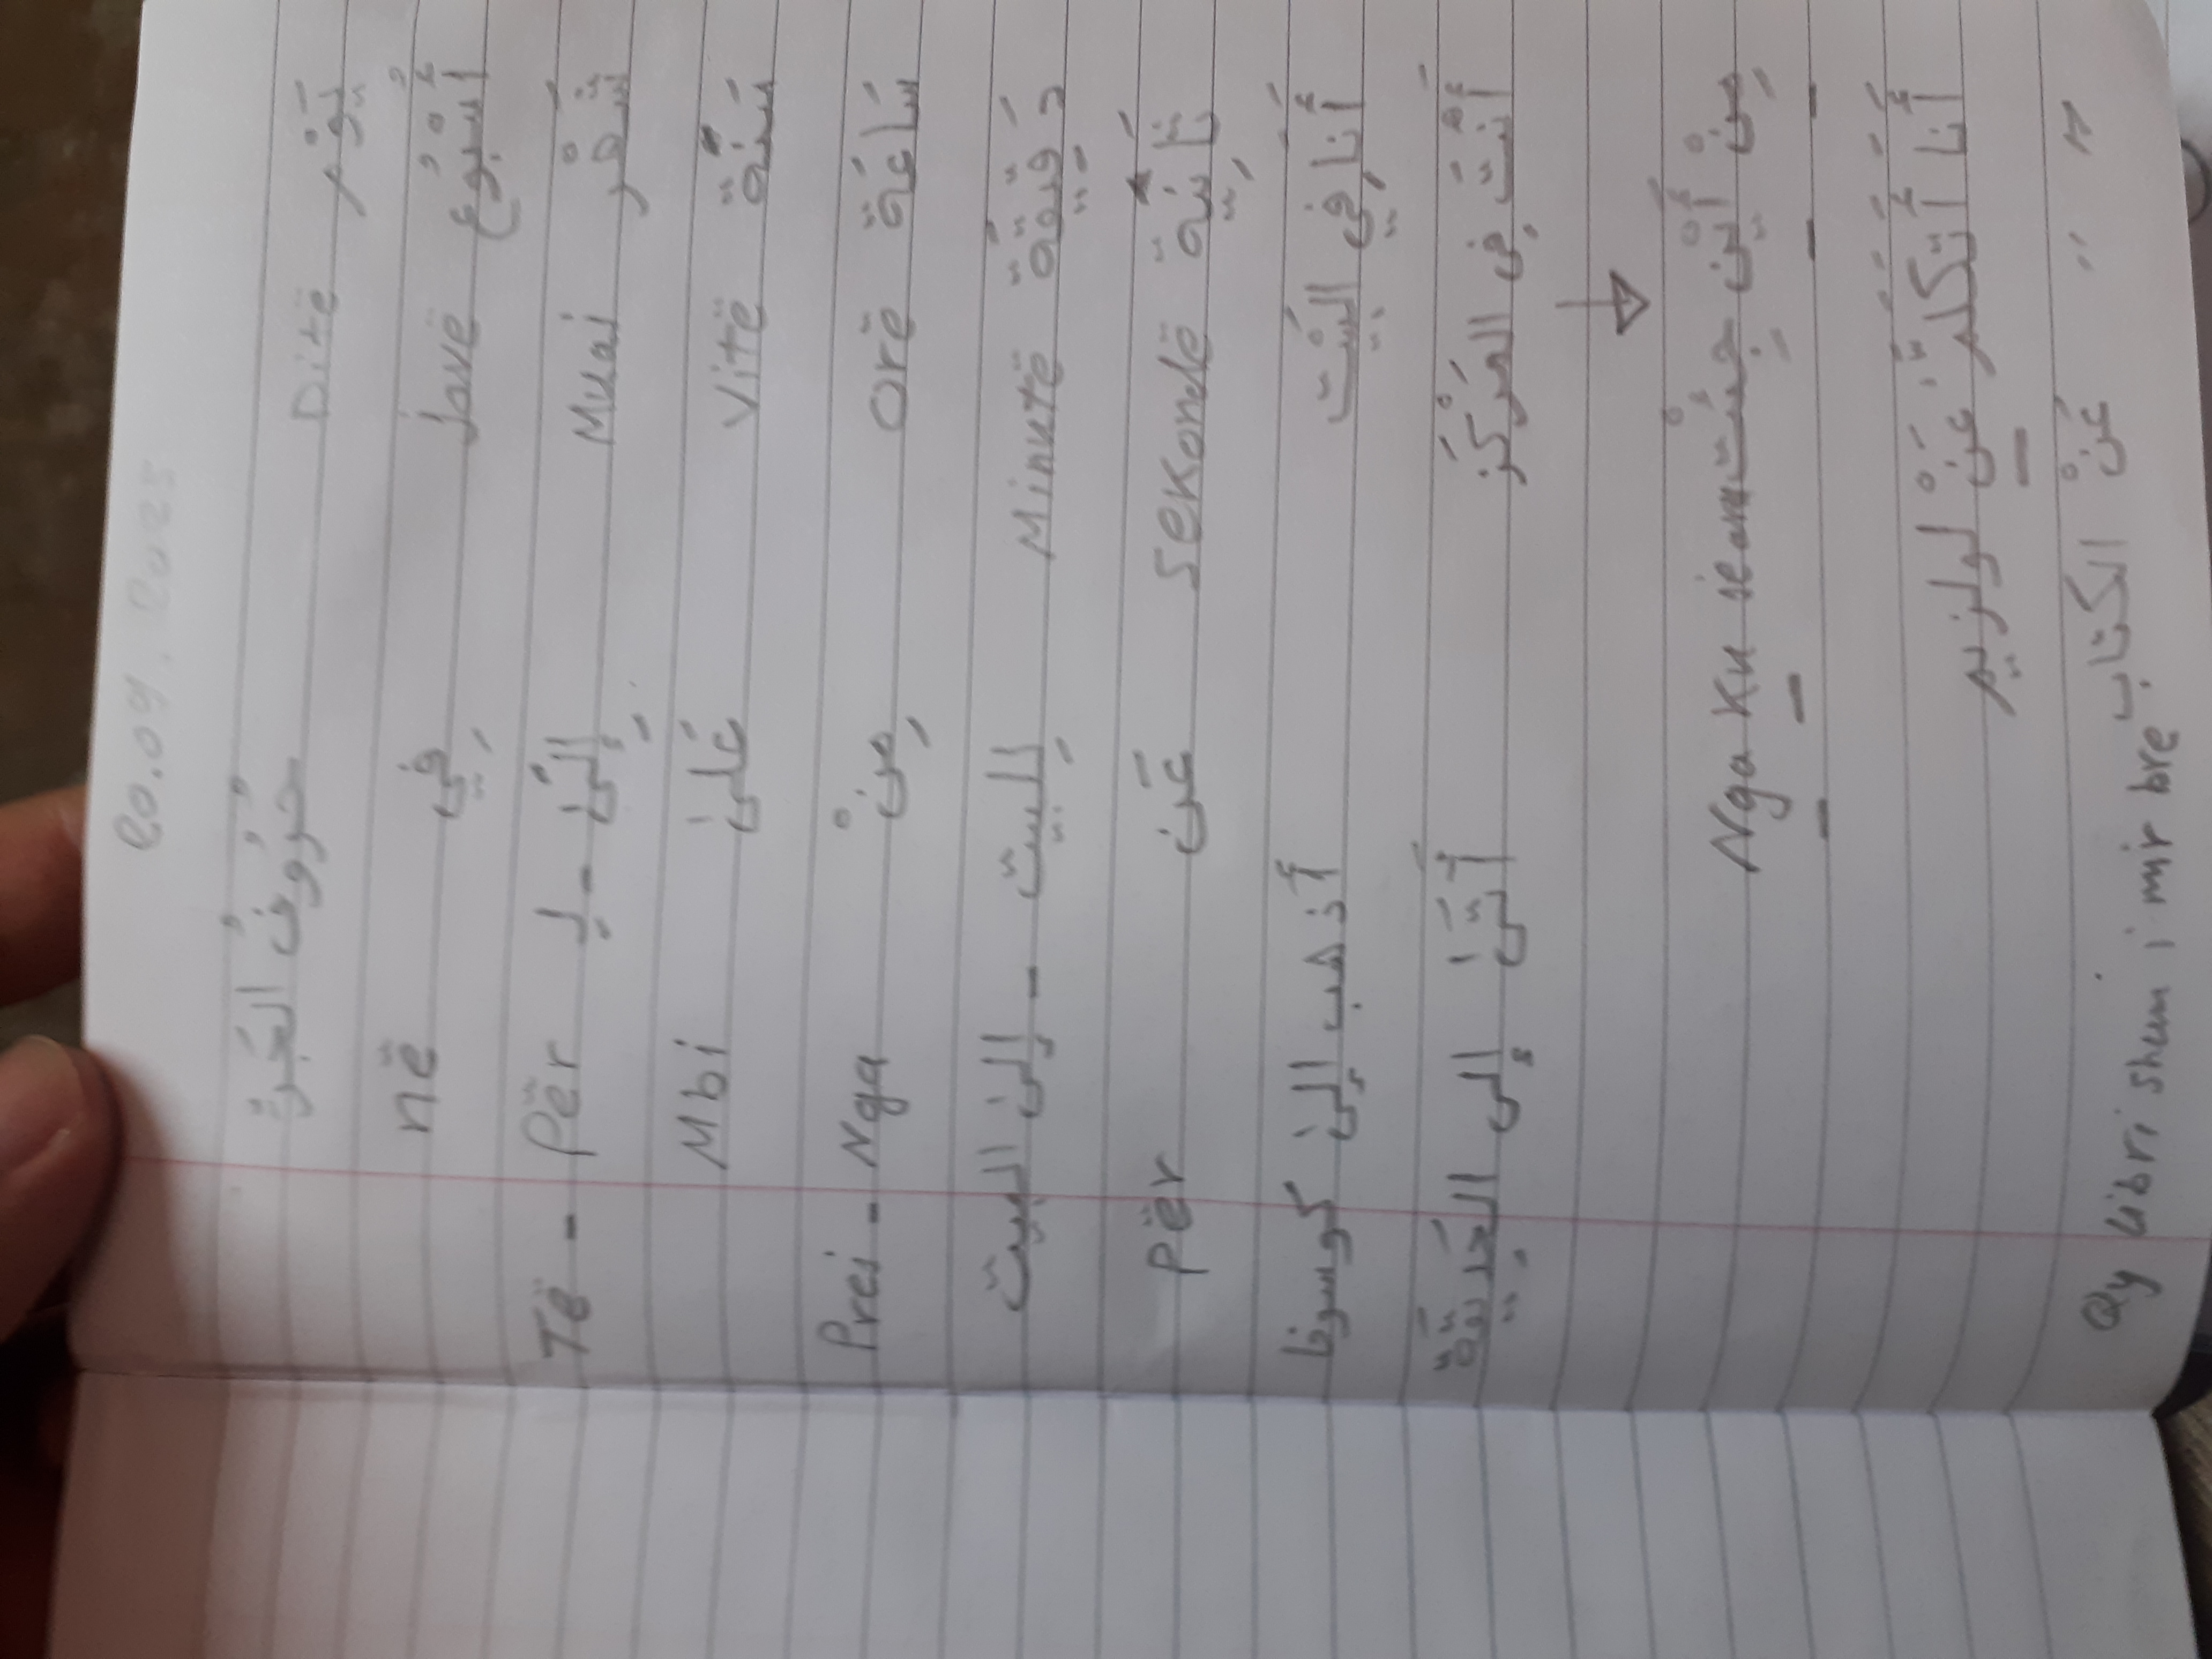 20.09.2025
حُرُوفُ الْجَرِّ Ditë يَوْم
në فِي Javë أُسْبُوْع
Të - Për لِ - إِلَىٰ Muaj شَهْر
Mbi عَلَىٰ Vitë سَنَة
Prej - Nga مِنْ Orë سَاعَة
إلى البيت - لِلبيت Minutë دَقِيقَة
për عَن Sekondë ثَانِيَة
أَذهب إلىٰ كوسوفا أَنَا فِي البَيْت
أَتَىٰ إلى المَدِينَة أَنْتَ فِي المَرْكَز
Nga ku jeam مِنْ أَيْنَ جِئْتَ
أَنَا أَتَكَلَّمُ عَنْ لولزيم
Qy libri shum i mir bre عَنْ الكتاب " "